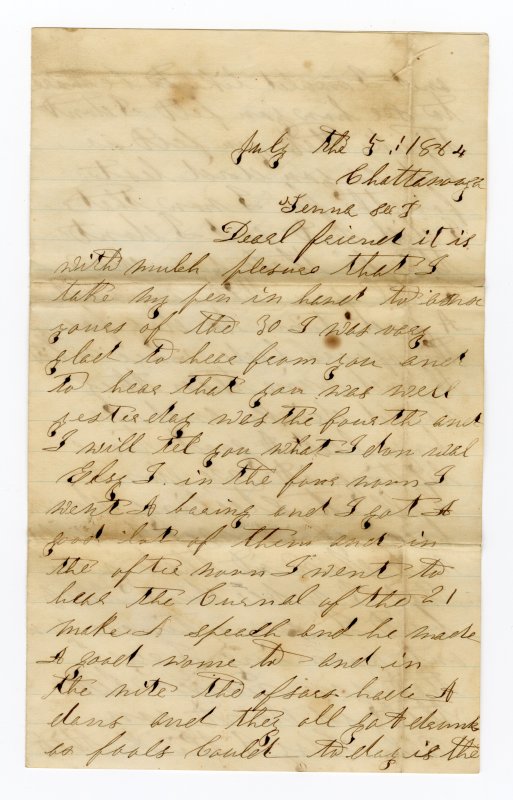 July the 5.! 1864
Chattanooga
Tenna
Dear friend it is
with mutch plesure that I
take my pen in hand to
yours of the 30 I was vary
glad to hear from you and
to hear that you was well
yesterday was the fourth and
I will tel you what I don wal
I in the fournoon I
went A baring and I got A
good lot of them and in
the after noon I went to
hear the Curnal of the 21
make A speach and he made
A good wone to and in
the nite the ofisors hade A
dans and they all got drunk
as fools Could to day is the